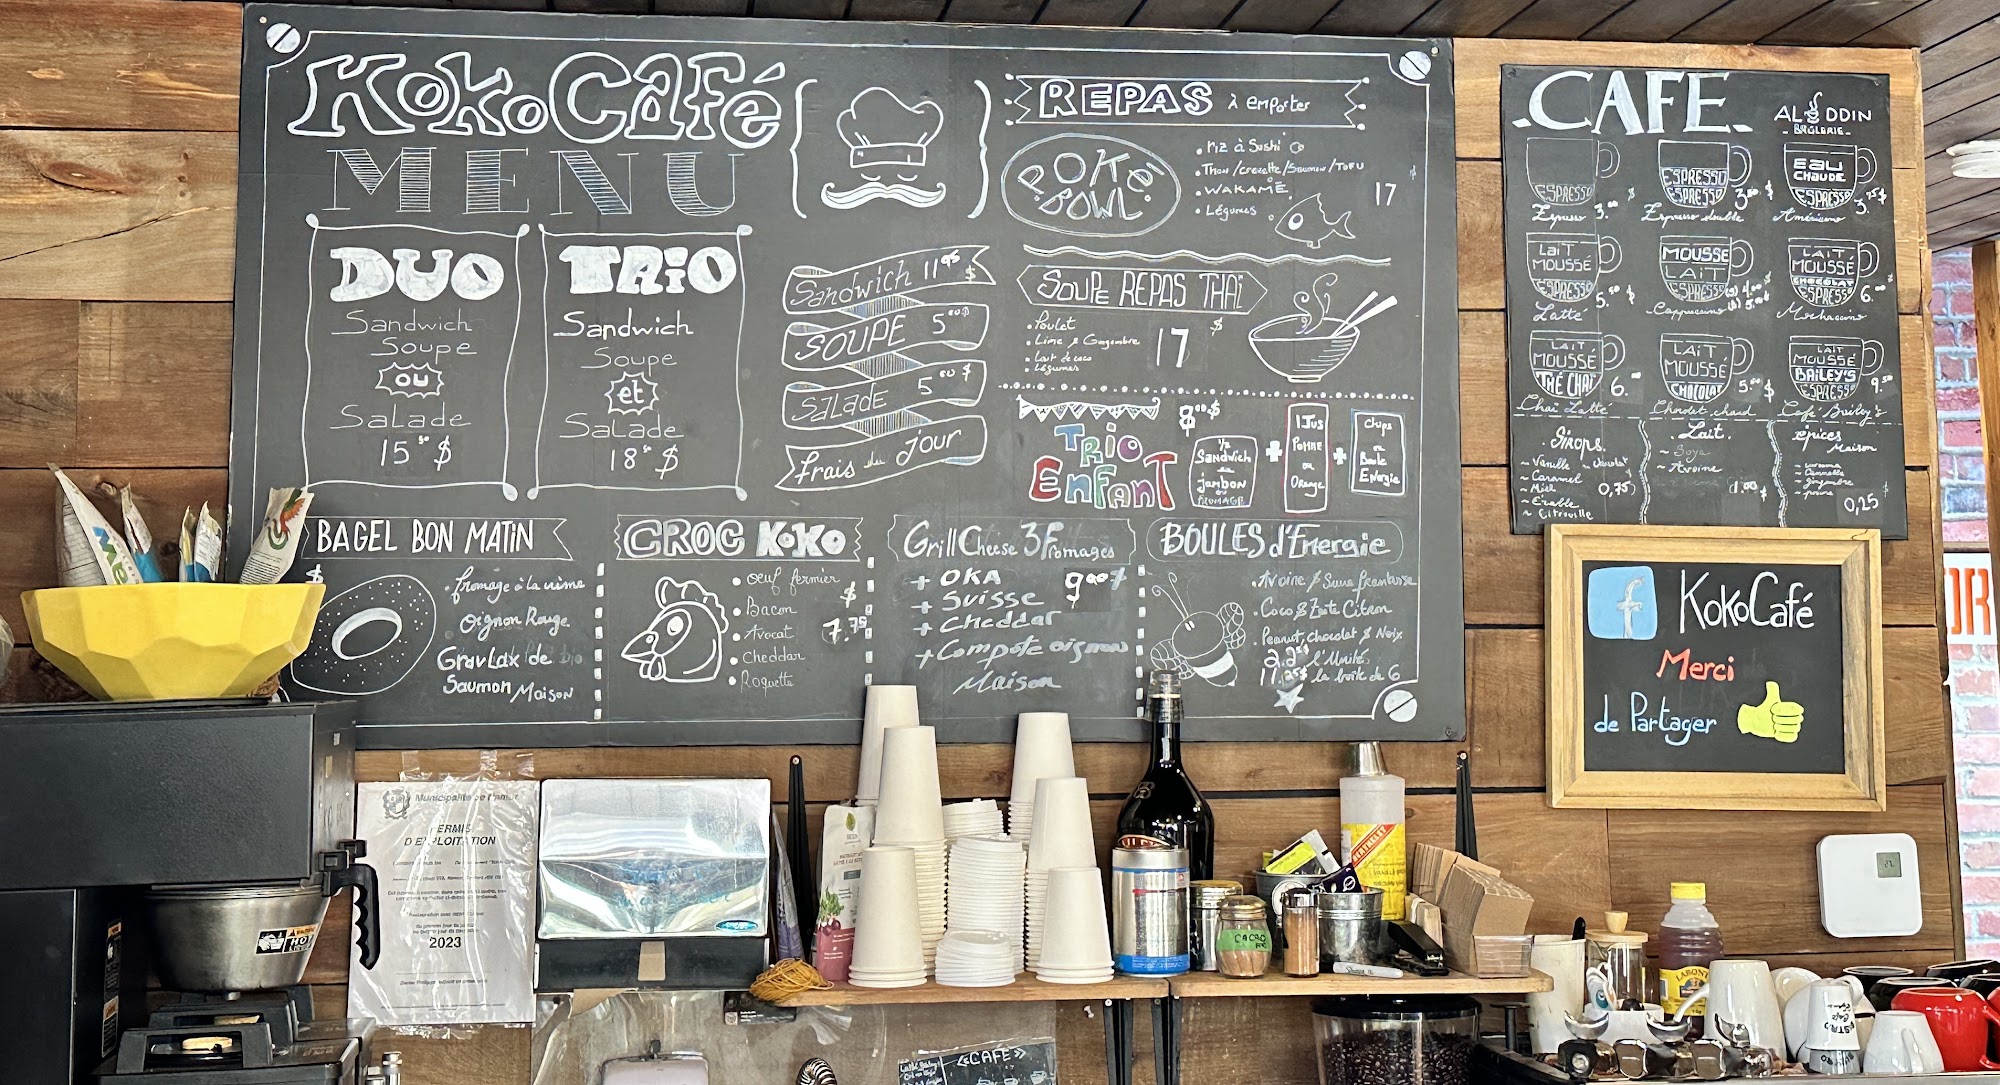 KoKoCafé
MENU
DUO
Sandwich
Soupe
ou
Salade
15.50 $
TRiO
Sandwich
Soupe
et
Salade
18.50 $
Sandwich 11.95 $
SOUPE 5.00 $
SALADE 5.00 $
frais du jour
REPAS à emporter
POKÉ
BOWL
• Riz à Sushi
• Thon/crevette/Saumon/TOFU
• WAKAMÉ
• Légumes
17 $
SOUPE REPAS THAÏ
• Poulet
• Lime & Gingembre
• Lait de coco
• Légumes
17 $
TRIO
ENFANT
8.00 $
1/2
Sandwich
jambon
ou
FROMAGE
+
1 Jus
POMME
ou
Orange
+
Chips
ou
Boule
Energie
BAGEL BON MATIN
$
• fromage à la crème
Oignon Rouge
GravLax de
Saumon Maison
CROC KoKo
• Oeuf fermier
• Bacon
• Avocat
• Cheddar
• Roquette
7.75 $
GrillCheese 3Fromages
+ OKA
+ SUISSE
+ Cheddar
+ Compote oignon
Maison
BOULES d'Energie
• Avoine &
• Coco & Zeste Citron
• Peanut, Chocolat & Noix
2.25$ l'Unité
la boîte de 6
CAFE
ALADDIN
-BRÛLERIE-
ESPRESSO
Espresso 3.00 $
ESPRESSO
ESPRESSO
Espresso double
EAU
CHAUDE
ESPRESSO
Américano 3.75 $
LAIT
MOUSSÉ
ESPRESSO
Latté 5.50 $
MOUSSE
LAIT
ESPRESSO
Cappuccino
LAIT
MOUSSÉ
CHOCOLAT
ESPRESSO
Mochaccino
LAIT
MOUSSÉ
THÉ CHAÏ
Chaï Latté
LAIT
MOUSSÉ
CHOCOLAT
Chocolat chaud
LAIT
MOUSSÉ
BAILEY'S
ESPRESSO
Café Bailey's
Sirops.
~ Vanille ~ chocolat
~ Caramel
~ Miel
~ Erable
~ Citrouille
0,75
. Lait.
~ Soya
~ Avoine
épices
Maison
~ curcuma
~ Cannelle
~ gingembre
~ poivre
0,25 $
f KoKoCafé
Merci
de Partager
Municipalité de Namur
PERMIS
D'EXPLOITATION
2023
HOT
CACAO
«CAFE»